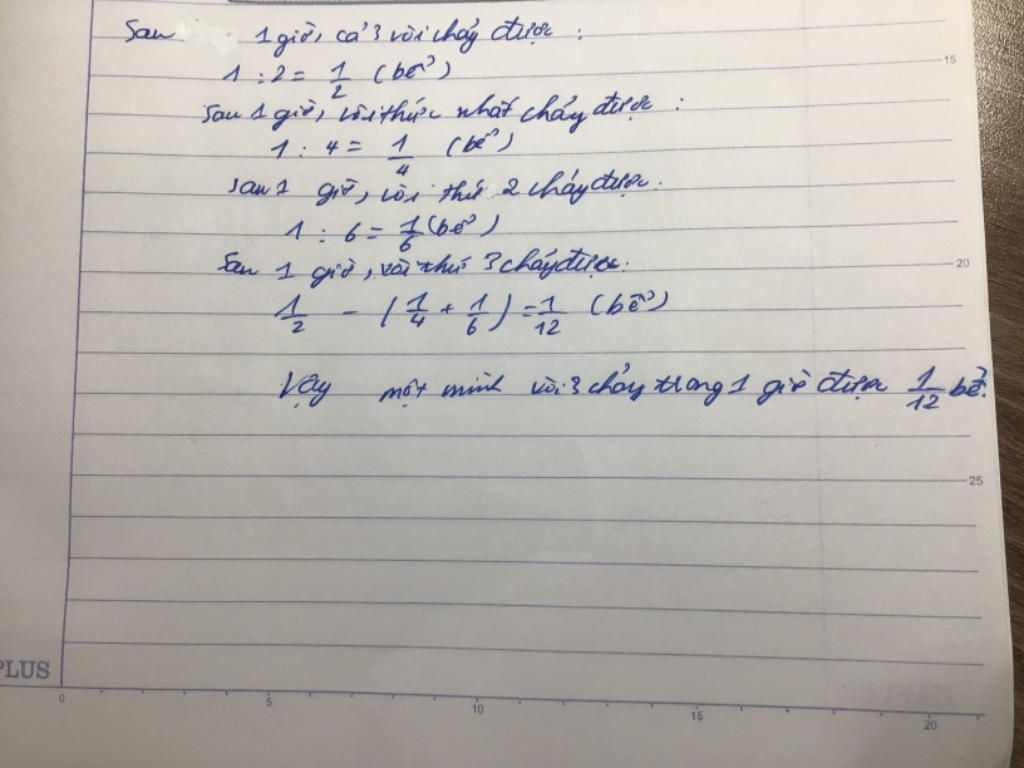 Sau 1 giờ, cả 3 vòi chảy được :
1 : 2 = 1/2 (bể)
Sau 1 giờ, vòi thứ nhất chảy được :
1 : 4 = 1/4 (bể)
Sau 1 giờ, vòi thứ 2 chảy được.
1 : 6 = 1/6 (bể)
Sau 1 giờ, vòi thứ 3 chảy được:
1/2 - (1/4 + 1/6) = 1/12 (bể)
Vậy một mình vòi 3 chảy trong 1 giờ được 1/12 bể.
15
20
25
PLUS
0 5 10 15 20